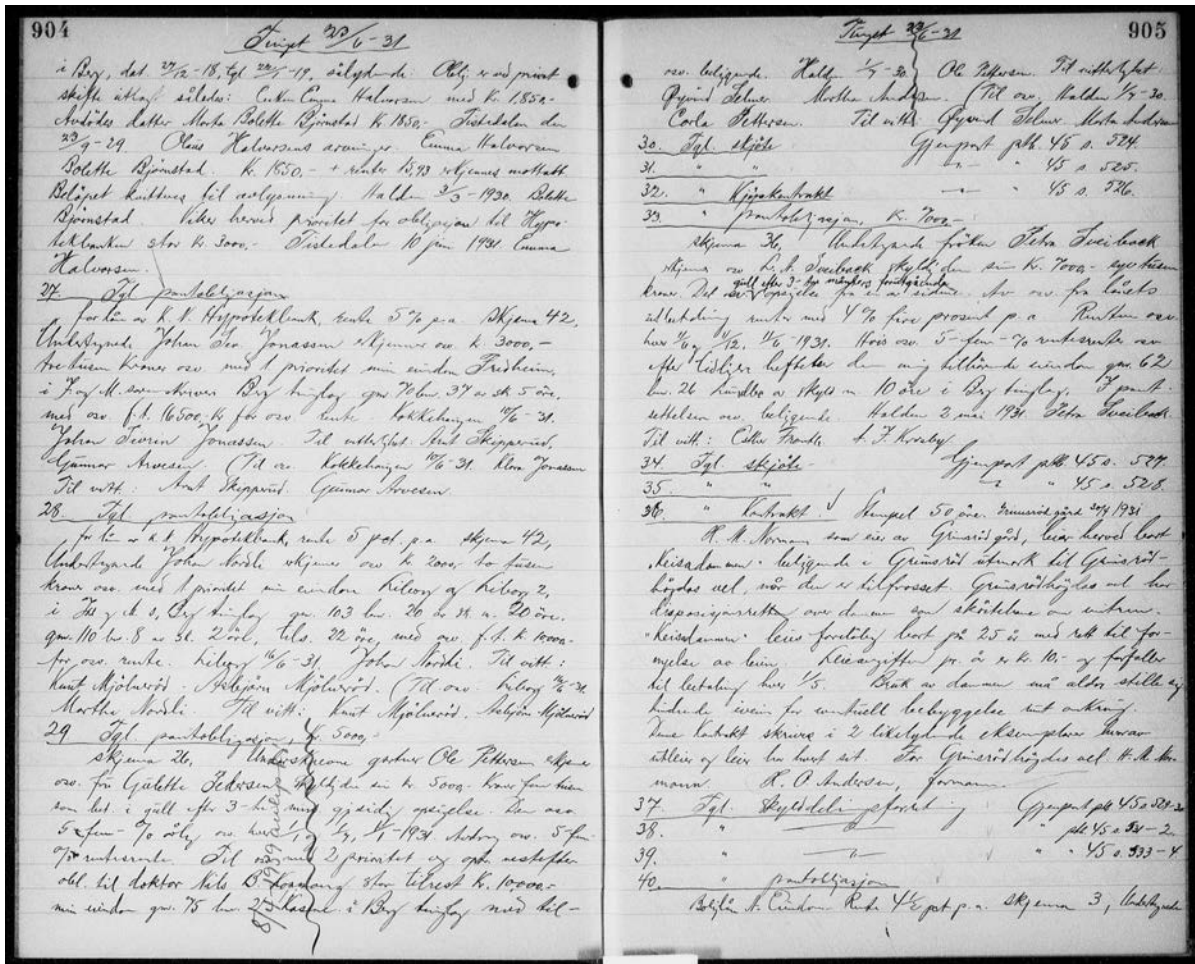 904
Tinget 23/6-31
i Berg, dat. 27/12-18, tgl 22/1-19, sålydende: Obl. er ved privat
skifte utlagt således: Enken Emma Halvorsen med kr. 1850.-
Avdødes datter Marta Bolette Bjørnstad kr. 1850.- Tistedalen den
23/9-29. Olaus Halvorsens arvinger. Emma Halvorsen
Bolette Bjørnstad. Kr. 1850.- + renter 15,93 erkjennes mottatt
Beløpet kvitteres til avlysning Halden 3/3-1930. Bolette
Bjørnstad. Viker herved prioritet for obligasjon til Hypo-
tekbanken stor kr. 3000,- Tistedalen 10 juni 1931. Emma
Halvorsen.
27. Tgl pantobligasjon
for lån av K. N. Hypotekbank, rente 5 % p.a. skjema 42,
Undertegnede Johan Jonassen erkjenner osv. kr. 3000,-
tretusen kroner osv. med 1 prioritet min eiendom Fredheim,
i Berg tinglag gnr. 70 bnr. 37 av sk 5 øre,
med osv. f.t. 16500,- kr for osv. rente Kokkehaugen 10/6-31.
Johan Jonassen. Til vitterlighet: Arnt Skipperud,
Gunnar Arvesen. (Til osv. Kokkehaugen 10/6-31. Klara Jonassen
Til vitt.: Arnt Skipperud. Gunnar Arvesen.
28. Tgl. pantobligasjon
for lån av K. N. Hypotekbank, rente 5 pct. p.a. skjema 42,
Undertegnede Johan Nordli erkjenner osv kr 2000,- to tusen
kroner osv. med 1 prioritet min eiendom Liborg og Liborg 2,
i Berg tinglag gnr. 103 bnr. 20 av sk. m. 20 øre,
gnr. 110 bnr. 8 av sk. 2 øre, tils. 22 øre, med osv. f.t. kr 10000.-
for osv. rente. Liborg 16/6-31. Johan Nordli. Til vitt:
Knut Mjølnerød. Asbjørn Mjølnerød. (Til osv. Liborg 16/6-31.
Martha Nordli. Til vitt: Knut Mjølnerød. Asbjørn Mjølnerød
29 Tgl. pantobligasjon, kr. 5000,-
skjema 26, Underskrevne gartner Ole Pettersen erkjenner
osv. fru Gulette Pedersen skyldig den sum kr. 5000.- kroner fem tusen
som bet. i gull efter 3-tre mnd gjensidig opsigelse. Den osv.
5-fem-% årlig osv. hver 1/4, 11/-1931. osv. 5-fem-
% rentesrente. Til osv. med 2 prioritet og opr. nestefter
obl. til doktor Nils B. stor tilrest kr. 10000.-
min eiendom gnr. 75 bnr. 27 i Berg tinglag med til-
905
Tinget 23/6-31
osv. beliggende. Halden 1/4-30. Ole Pettersen. Til vitterlighet
Øyvind Selmer. Martha Andersen. (Til osv. Halden 1/4-30.
Carla Pettersen. Til vitt: Øyvind Selmer. Marta Andersen
30. Tgl. skjøte Gjenpart ptb. 45 s. 524.
31. " " - " - " 45 s. 525.
32. " Kjøpekontrakt - " - " 45 s. 526.
33. " pantobligasjon, kr. 7000,-
skjema 36, Undertegnede frøken Petra Sveiback
erkjenner osv. L. A. Sveiback skyldig den sum kr. 7000,- syv tusen
kroner. Det osv. gull efter 3-tre måneders forutgående opsigelse fra en av sidene. Av osv. fra lånets
utbetaling renter med 4 % fire prosent p.a. Rentene osv.
hver 11/6 og 11/12, 11/6-1931. Hvis osv. 5-fem-% rentesrenter osv
efter tidligere heftelser den mig tilhørende eiendom gnr. 62
bnr. 26 av skyld m. 10 øre i Berg tinglag. I pant-
settelsen osv. beliggende. Halden 2 mai 1931. Petra Sveiback.
Til vitt.:
34. Tgl. skjøte Gjenpart ptb. 45 s. 527.
35. " " " " 45 s. 528.
36. " Kontrakt. Stempel 50 øre. Grimsrød gård 20/4 1931
H. M. Normann som eier av Grimsrød gård, leier herved bort
"Keisadammen" beliggende i Grimsrød utmark til Grimsrød-
høgdas vel, når den er tilfrosset. Grimsrødhøgdas vel har
disposisjonsretten over dammen som skøitebane om vintren.
"Keisadammen" leies foreløbig bort på 25 år med rett til for-
nyelse av leien. Leieavgiften pr. år er kr. 10,- og forfaller
til betaling hver 1/5. Bruk av dammen må aldri stille sig
hindrende iveien for eventuell bebyggelse rundt omkring.
Denne kontrakt skrives i 2 likelydende eksemplarer hvorav
utleier og leier har hvert sitt. For Grimsrødhøgdas vel H. M. Nor-
mann. H. O. Andersen, formann.
37. Tgl. skylddelingsforretning Gjenpart ptb 45 s 529-30
38. " - " - " ptb 45 s. 531-2
39. " - " - " " 45 s. 533-4.
40. " pantobligasjon
Boliglån N. Eiendom. Rente 4½ pct p.a. skjema 3, Undertegnede